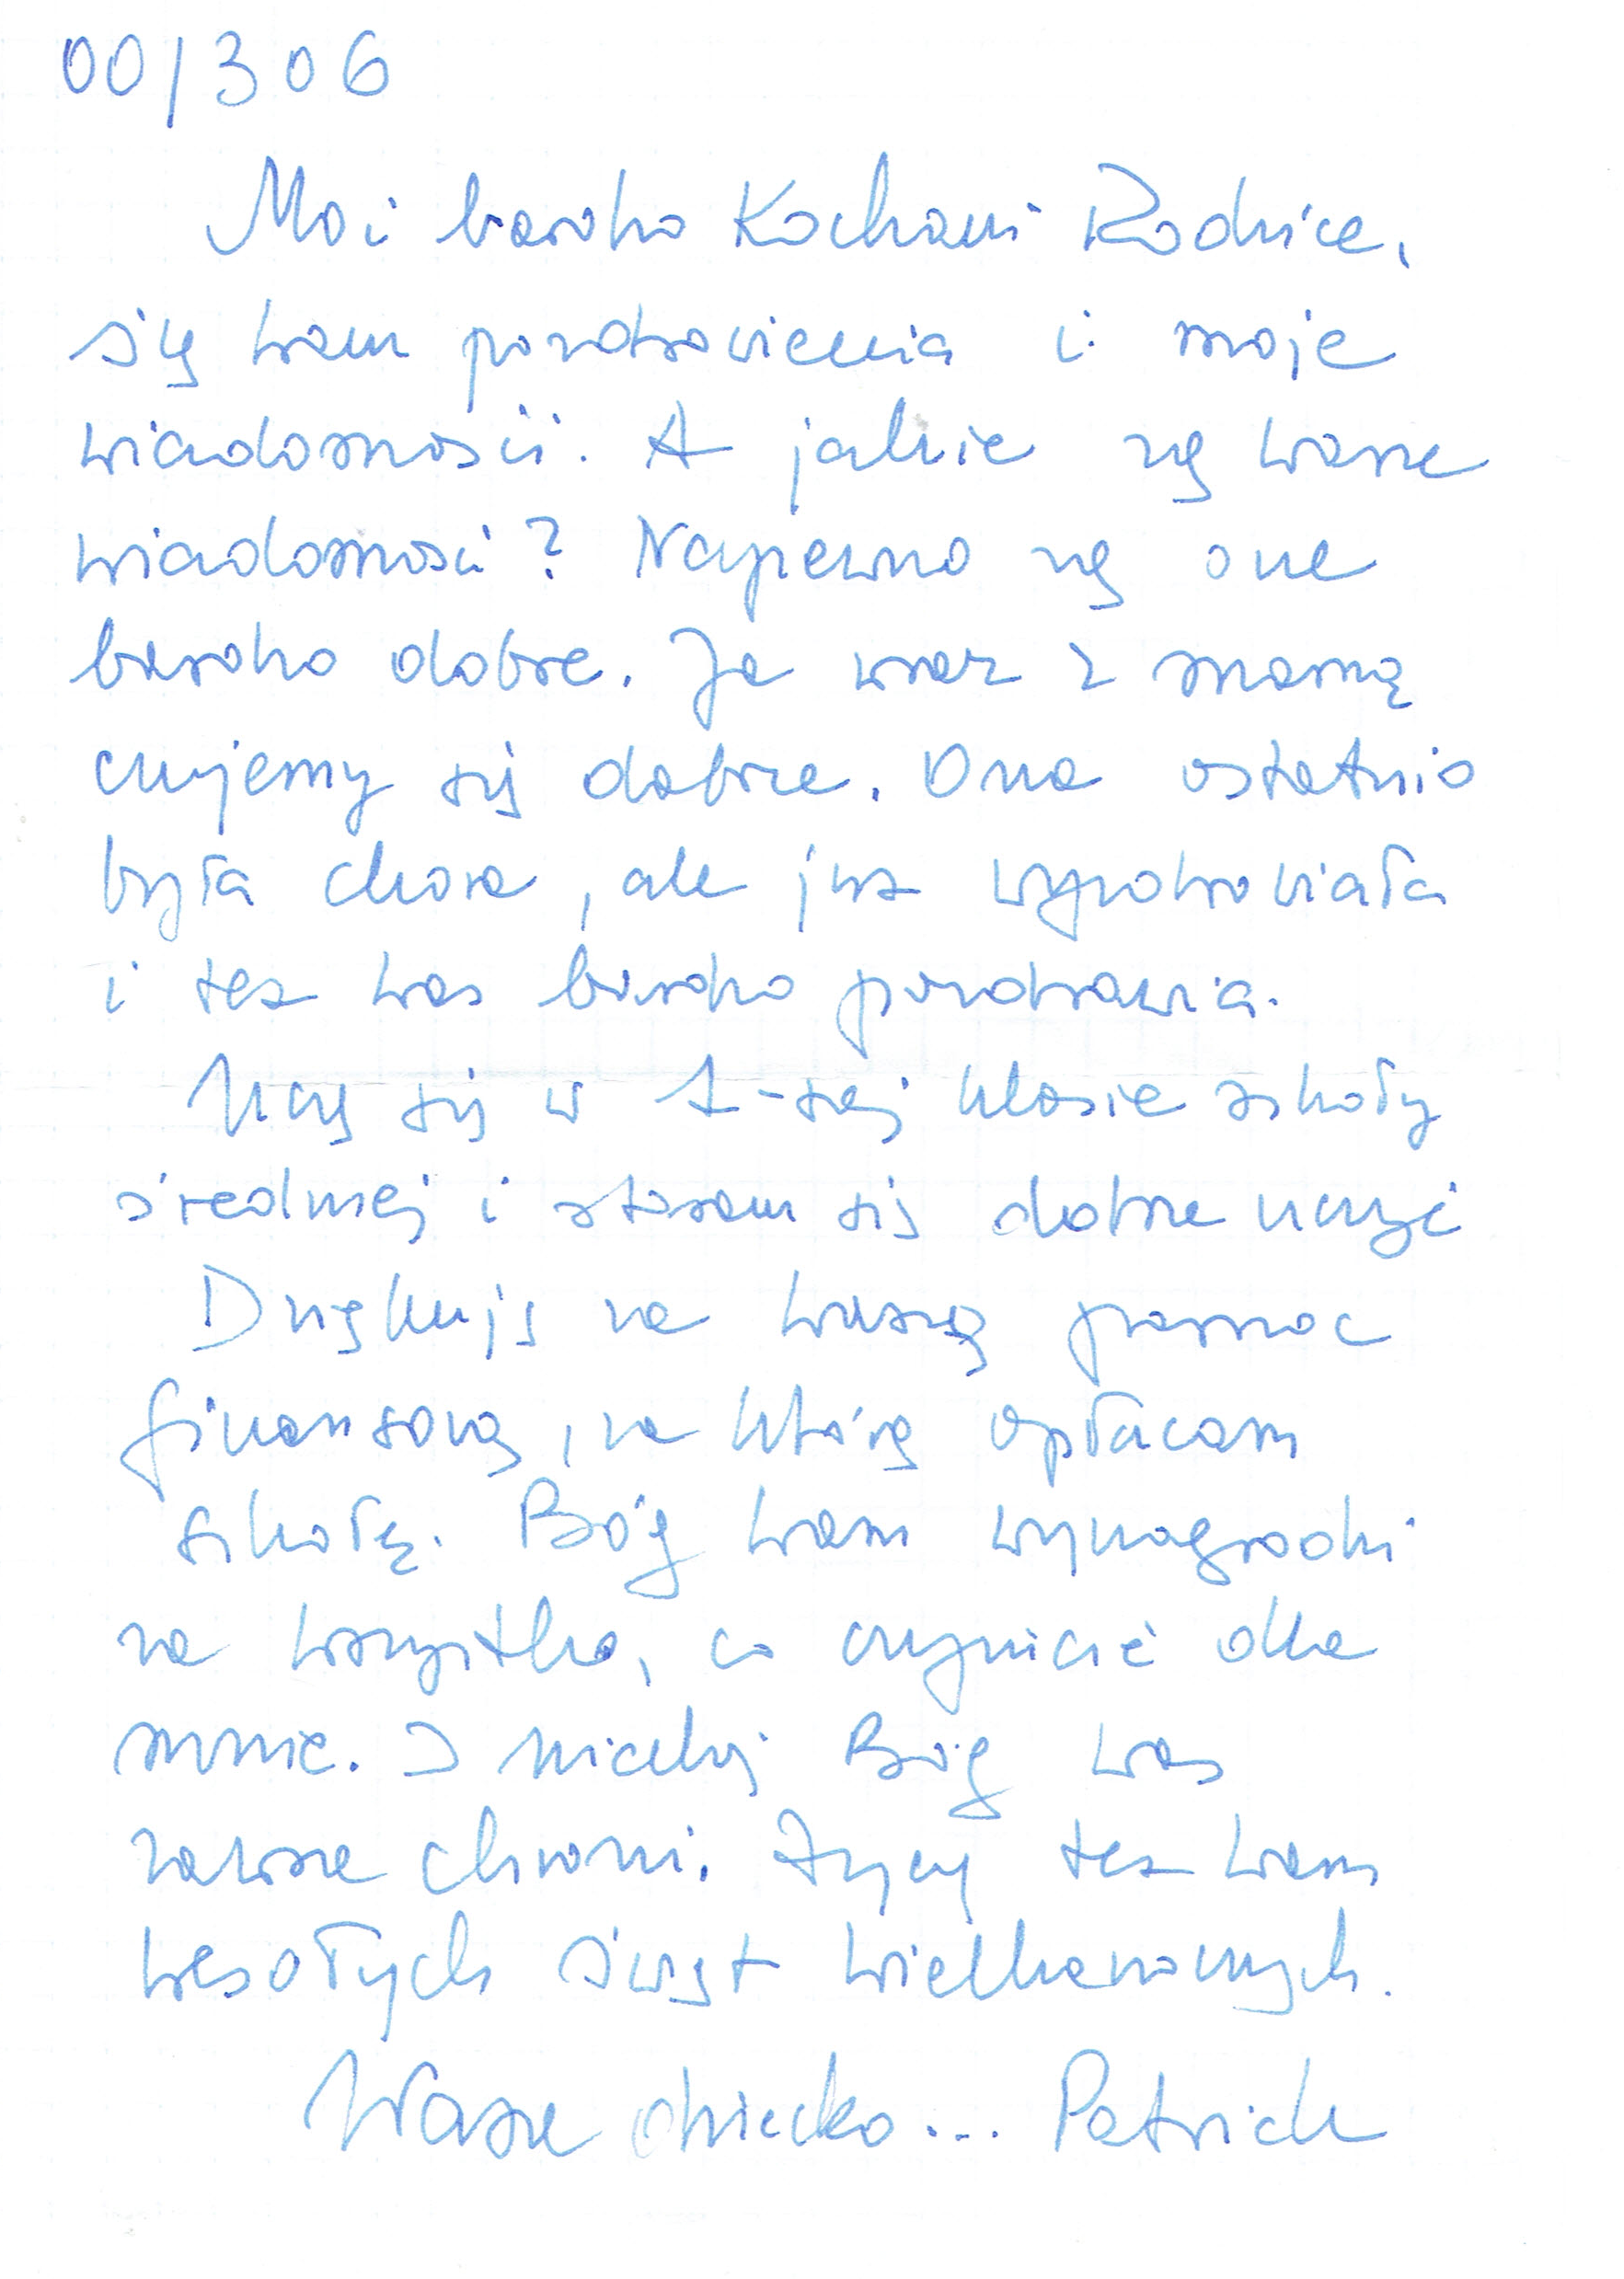 00/306
Moi bardzo Kochani Rodzice,
ślę wam pozdrowienia i moje
wiadomości. A jakie są wasze
wiadomości? Napewno są one
bardzo dobre. Ja wraz z mamą
czujemy się dobrze. Ona ostatnio
była chora, ale już wyzdrowiała
i też was bardzo pozdrawia.
Uczę się w 1-szej klasie szkoły
średniej i staram się dobrze uczyć
Dziękuję za waszą pomoc
finansową, za którą opłacam
szkołę. Bóg wam wynagrodzi
za wszystko, co czynicie dla
mnie. I niechaj Bóg was
zawsze chroni. Życzę też wam
wesołych świąt wielkanocnych.
Wasze dziecko... Patrick